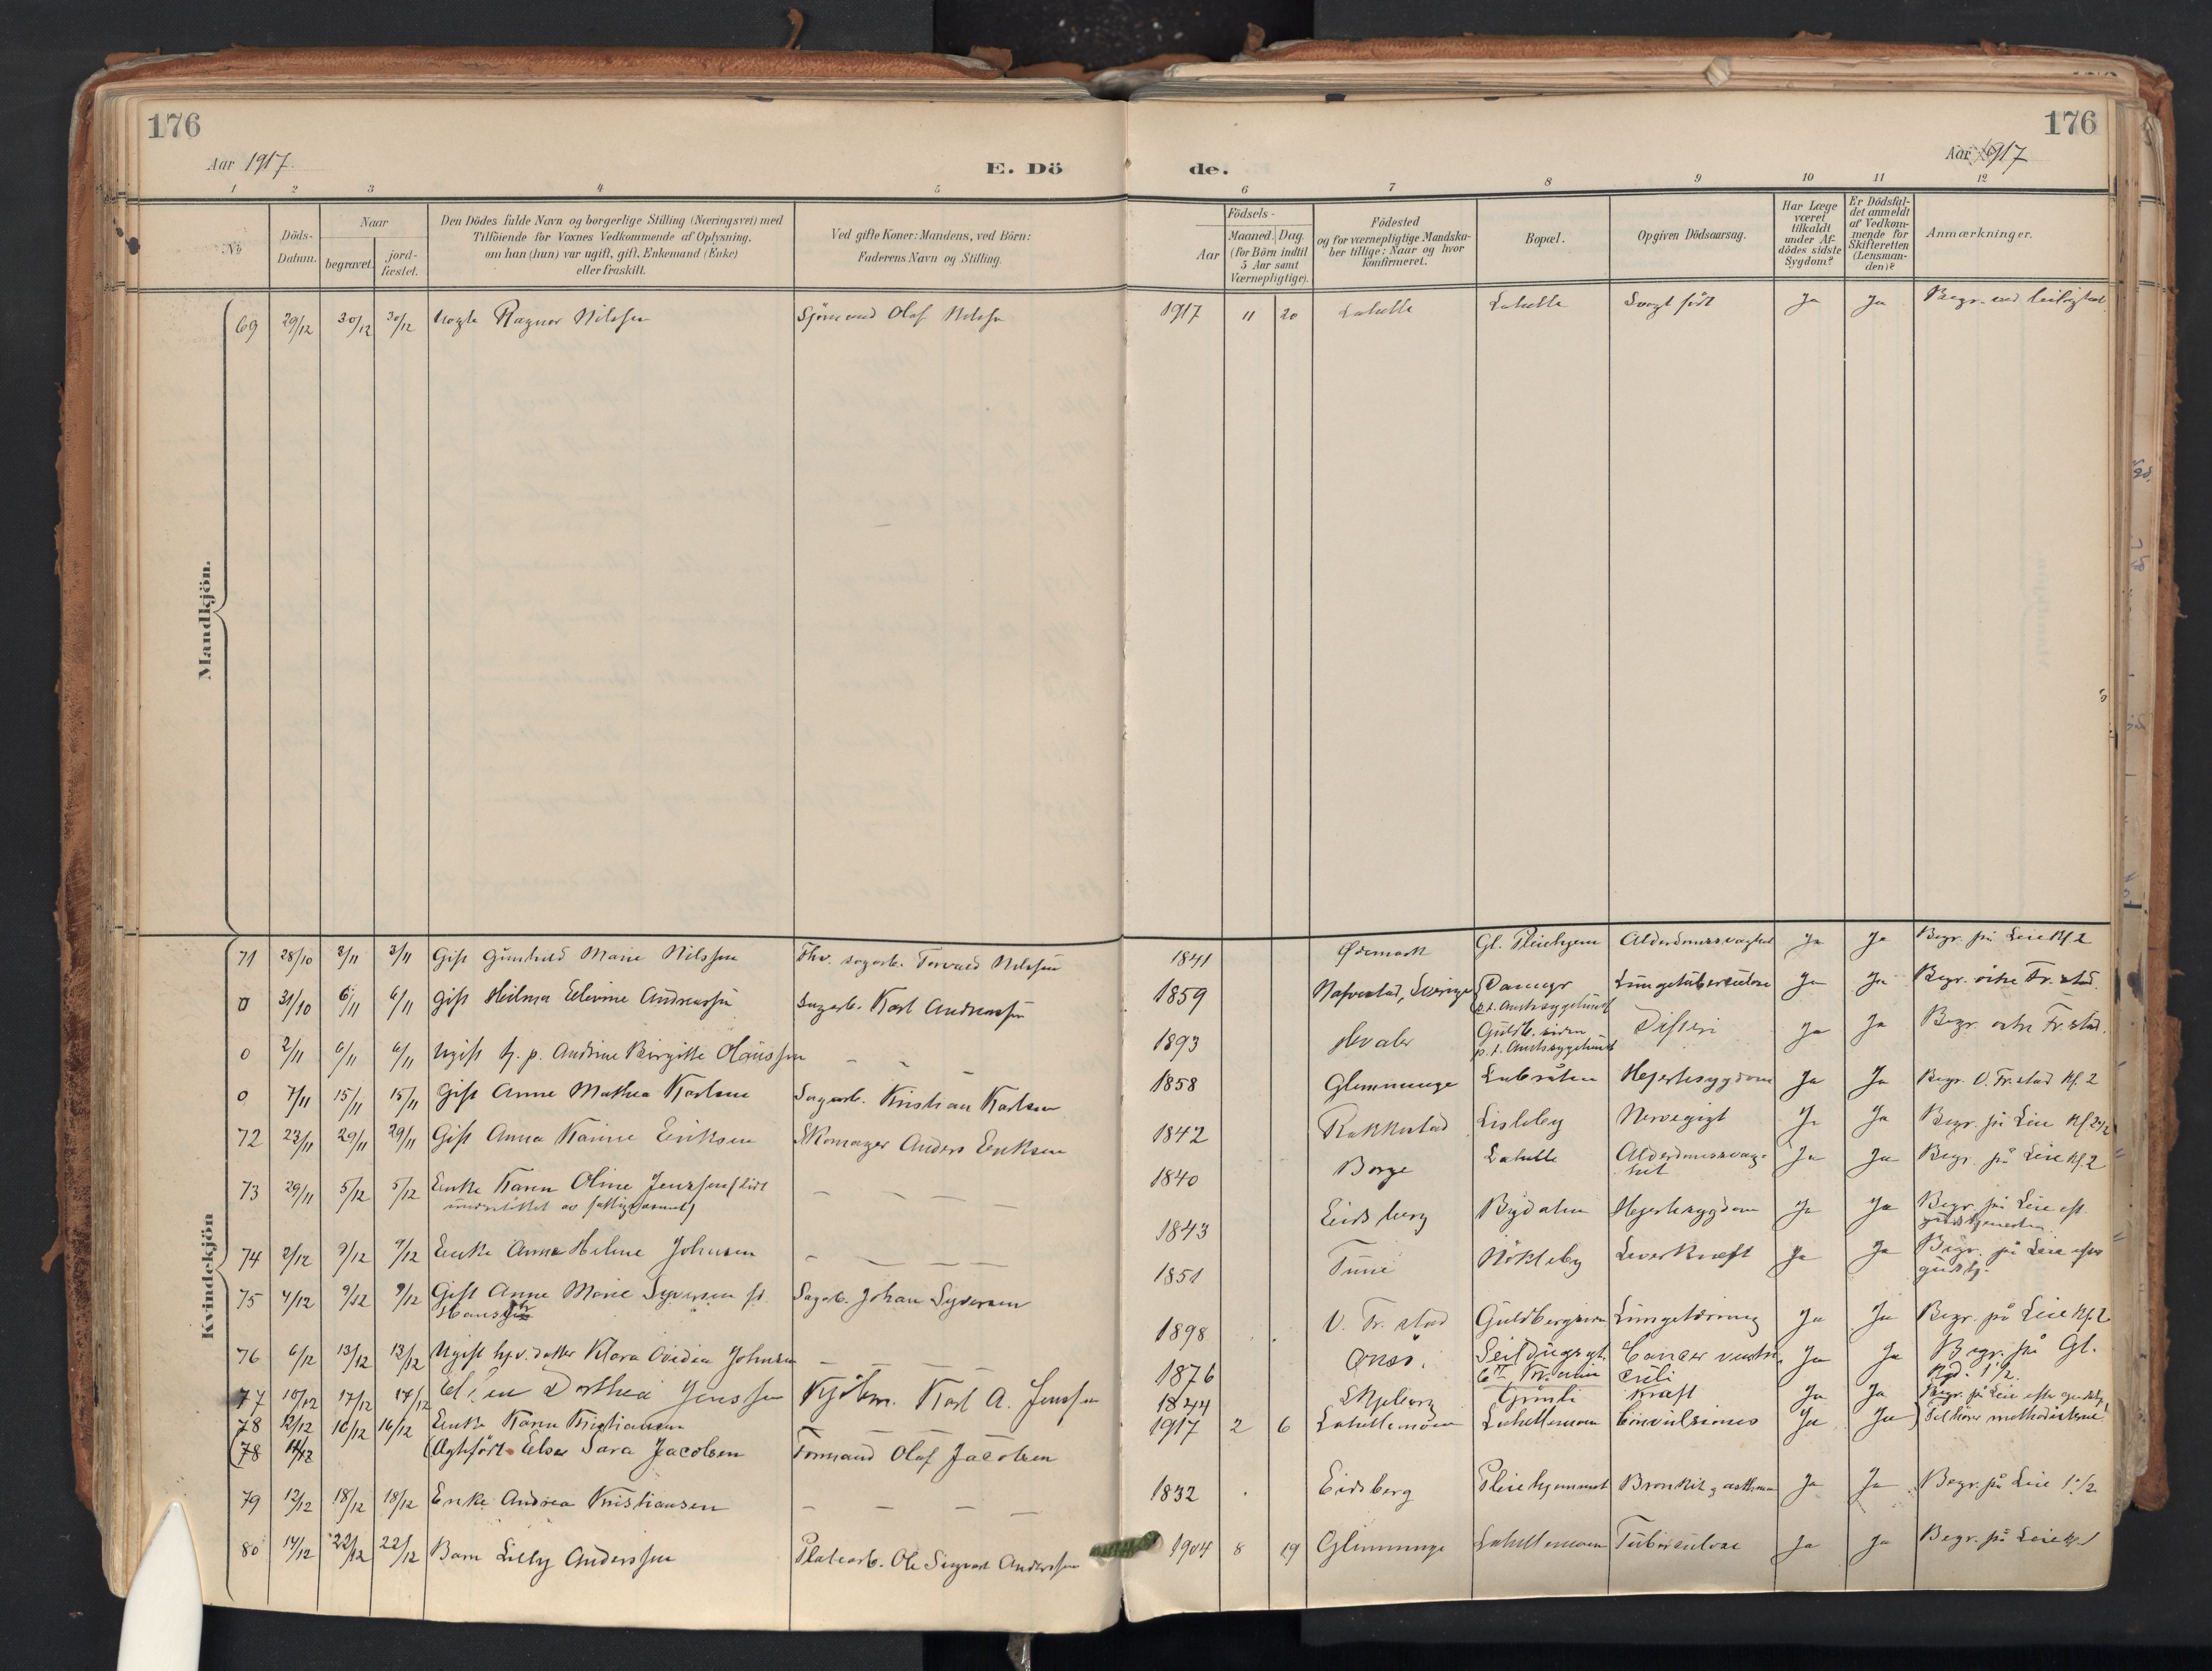 176
176
Aar 1917.
E. Dö
de.
Aar 1917
1 2 3 4 5 6 7 8 9 10 11 12
No
Döds-
Datum.
Naar
begravet.
jord-
fæstet.
Den Dödes fulde Navn og borgerlige Stilling (Næringsvei) med
Tilföiende for Voxnes Vedkommende af Oplysning,
om han (hun) var ugift, gift, Enkemand (Enke)
eller fraskilt.
Ved gifte Koner: Mandens, ved Börn:
Faderens Navn og Stilling.
Födsels-
Aar
Maaned.
Dag.
(for Börn indtil
5 Aar samt
Værnepligtige).
Födested
og for værnepligtige Mandska-
ber tillige: Naar og hvor
konfirmeret.
Bopæl.
Opgiven Dödsaarsag.
Har Læge
været
tilkaldt
under Af-
dödes sidste
Sygdom?
Er Dödsfal-
det anmeldt
af Vedkom-
mende for
Skifteretten
(Lensman-
den)?
Anmærkninger.
Mandkjön.
69 29/12 30/12 30/12 Ragnar Nilssen Sjömand Olaf Nilssen 1917 11 20 Lahelle Lahelle Svagt født Ja Ja Begr. ved leilighed
Kvindekjön
71 28/10 3/11 3/11 Gift Gunhild Marie Nilssen Fhv. sagarb. Torvald Nilssen 1841 Ødemark Gl. Pleiehjem Alderdomssvaghed Ja Ja Begr. på Leie Kl 2
0 31/10 6/11 6/11 Gift Hilma Elevine Andreassen Sagarb. Karl Andreassen 1859 Sverige Lungetuberculose Ja Ja Begr. østre Fr.stad.
p.t. Amtssygehuset
0 2/11 6/11 6/11 Ugift h.p. Andrine Birgitte Olaussen – – 1893 Hvaler Guldb. siden Difteri Ja Ja Begr. østre Fr.stad.
p.t. Amtssygehuset
0 7/11 15/11 15/11 Gift Anne Mathea Karlsen Sagarb. Kristian Karlsen 1858 Glemminge Hjertesygdom Ja Ja Begr. V. Fr.stad Kl. 2
72 23/11 29/11 29/11 Gift Anna Karine Eriksen Skomager Anders Eriksen 1842 Rakkestad Lisleby Nervegigt Ja Ja Begr. på Leie Kl 2 1/2
73 29/11 5/12 5/12 Enke Karen Oline Jenssen – – – – 1840 Borge Lahelle Alderdomssvag-
het Ja Ja Begr. på Leie Kl. 2
74 2/12 9/12 9/12 Enke Anna Helene Johnsen – – – – 1843 Eidsberg Bydalen Hjertesygdom Ja Ja Begr. på Leie eft.
gudstjenesten
75 4/12 9/12 9/12 Gift Anne Marie Syversen fd. Sagarb. Johan Syversen 1851 Tune Nökleby Leverkræft Ja Ja Begr. på Leie efter
gudstj.
76 6/12 13/12 13/12 Ugift hjv. datter Klara Ovidia Johnsen – – – – 1898 V. Fr.stad Guldbergsiden Lungetæring Ja Ja Begr. på Leie Kl. 2
77 10/12 17/12 17/12 Ellen Dorthea Jenssen Kjöbm. Karl A. Jenssen 1876 Onsö. Cancer Ja Ja Begr. på Gl.
78 12/12 16/12 16/12 Enke Karen Kristiansen 1844 Skjeberg Kræft Ja Ja Begr. på Leie efter gudstj.
(78 (Ægtefödt Else Sara Jacobsen Formand Olaf Jacobsen 1917 2 6 Lahellemoen Lahellemoen Convulsiones Ja Ja Tilhörer methodistkirk.
79 12/12 18/12 18/12 Enke Andrea Kristiansen – – – – 1832 Eidsberg Pleiehjemmet Bronkit, asthma Ja Ja Begr. på Leie 1 1/2
80 14/12 22/12 22/12 Barn Lilly Anderssen Platearb. Ole Sigvart Anderssen 1904 8 19 Glemminge Lahellemoen Tuberculose Ja Ja Begr. på Leie Kl. 1